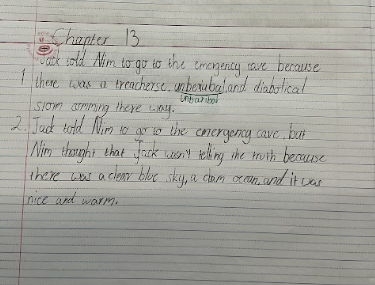 Chapter 13
1. Jack told Nim to go to the emergency cave because
there was a treacherse, unbexubal and diabolical
unbaribal
storm comming there way.
2. Jack told Nim to go to the emergency cave but
Nim thought that Jack wasn't telling the truth because
there was a clear blue sky, a clam ocean, and it was
nice and warm.